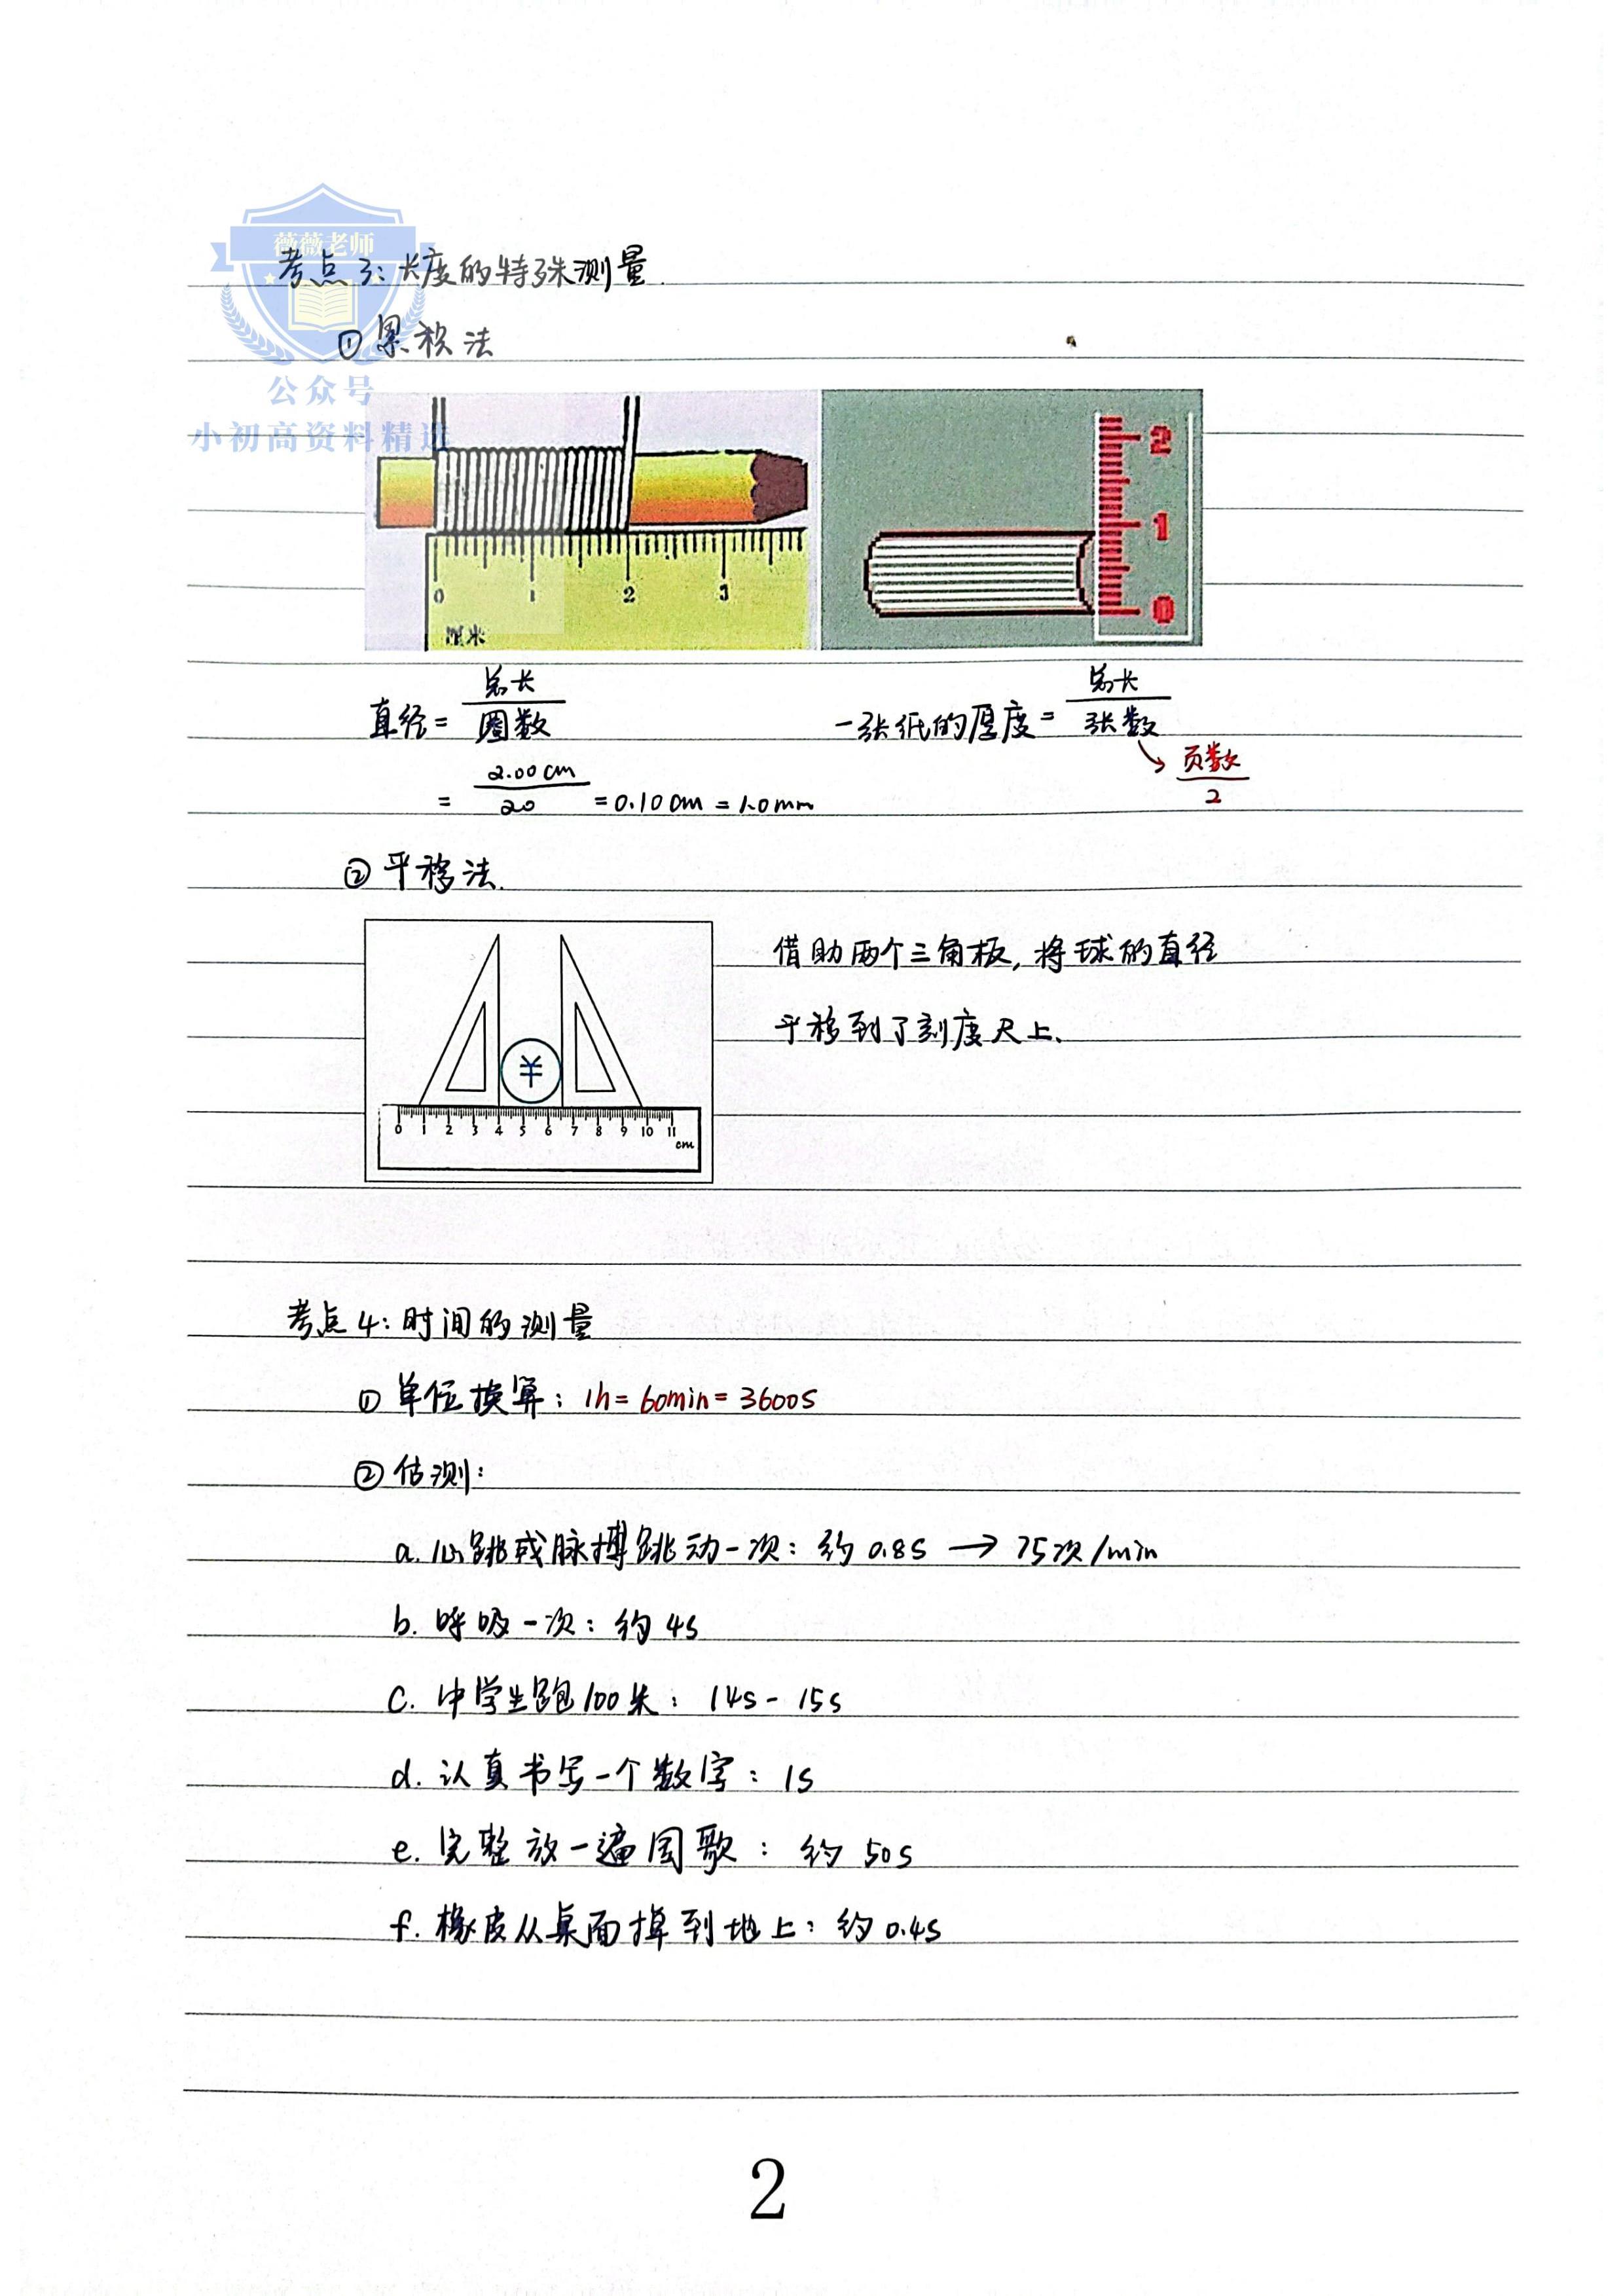 薇薇老师
考点3:长度的特殊测量.
①累积法
公众号
小初高资料精选
0 1 2 3
厘米
2
1
0
直径=总长/圈数
一张纸的厚度=总长/张数
→页数/2
=2.00cm/20=0.10cm=1.0mm
②平移法.
借助两个三角板,将球的直径
平移到了刻度尺上、
羊
0 1 2 3 4 5 6 7 8 9 10 11
cm
考点4:时间的测量
①单位换算:1h=60min=3600s
②估测:
a.心跳或脉搏跳动一次:约0.8s→75次/min
b.呼吸一次:约4s
c.中学生跑100米:14s-15s
d.认真书写一个数字:1s
e.完整放一遍国歌:约50s
f.橡皮从桌面掉到地上:约0.4s
2